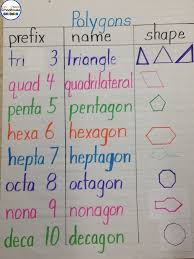 Polygons
prefix name shape
tri 3 triangle
quad 4 quadrilateral
penta 5 pentagon
hexa 6 hexagon
hepta 7 heptagon
octa 8 octagon
nona 9 nonagon
deca 10 decagon